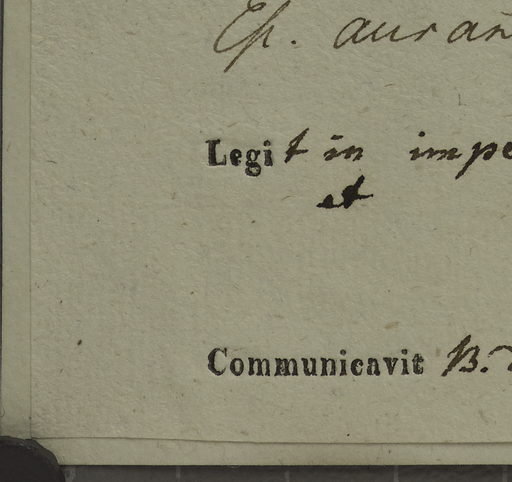 Ep. auran
Legit in impe
et
Communicavit B.